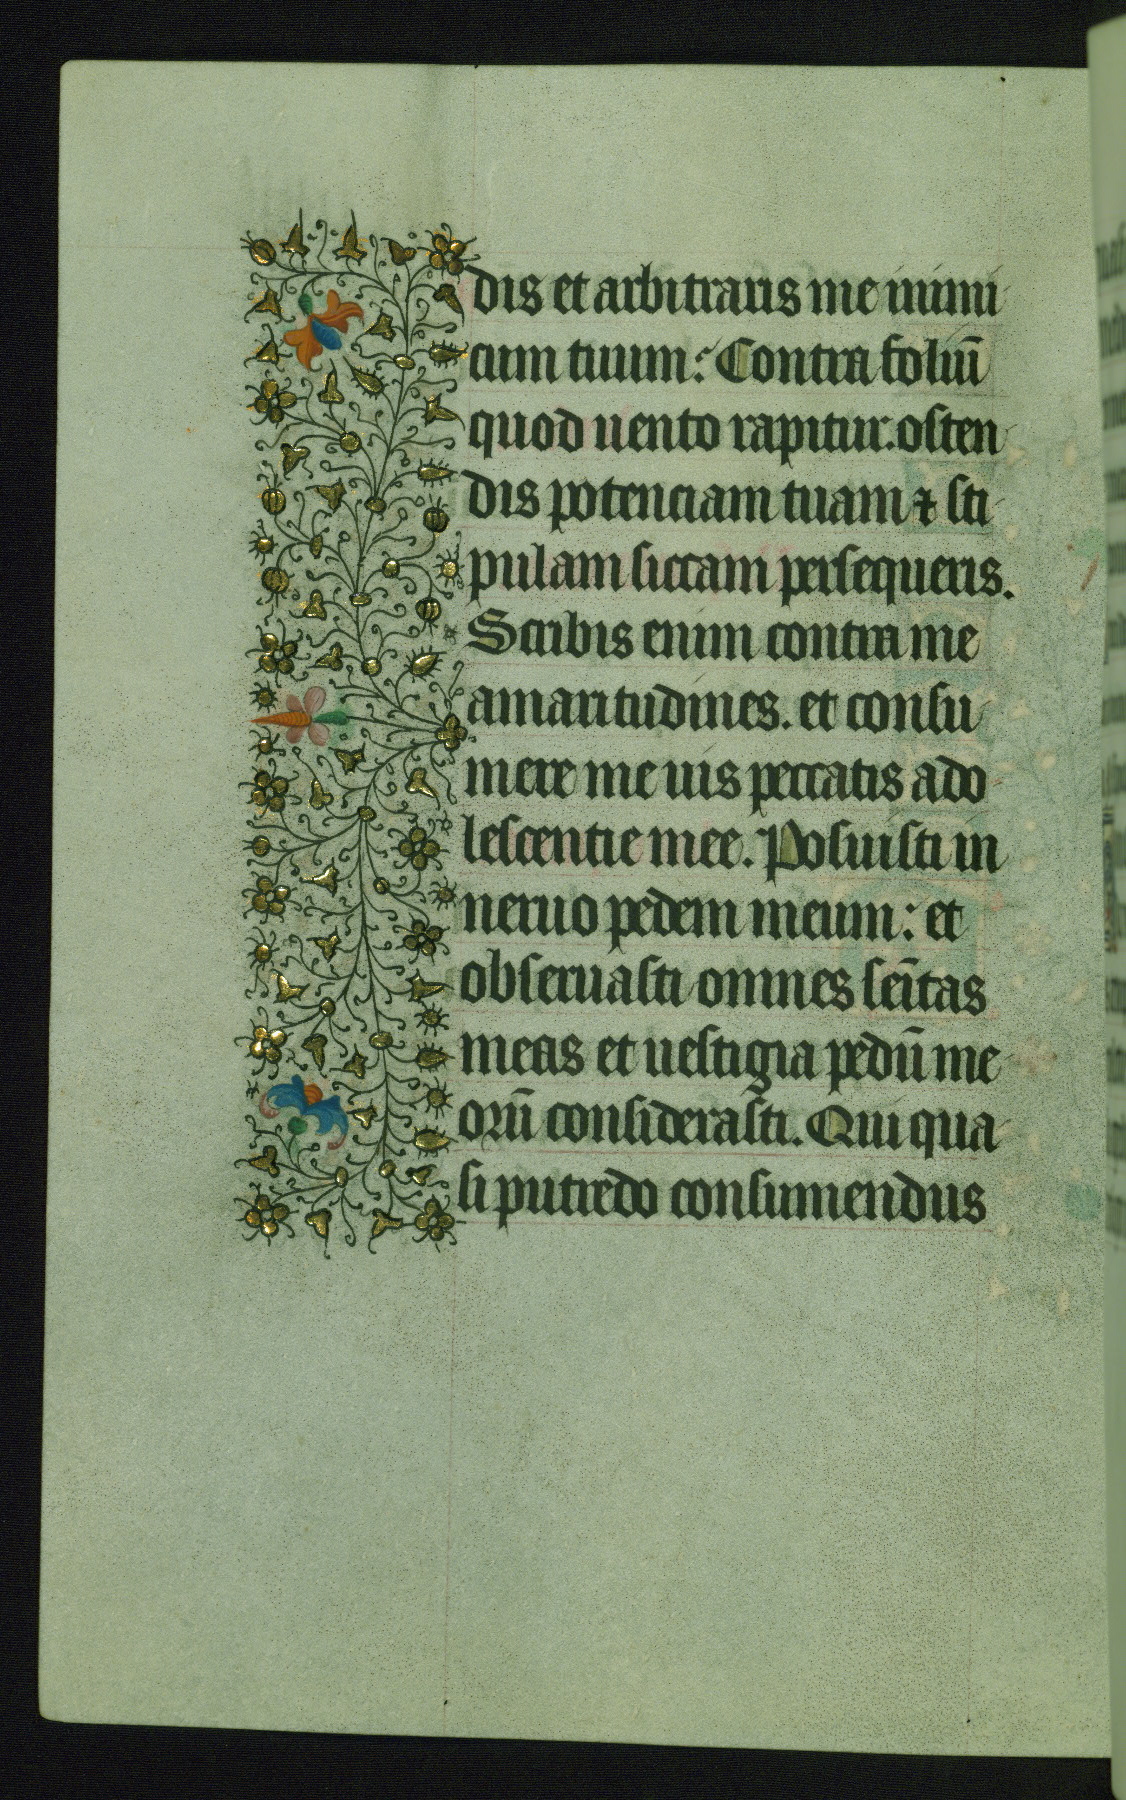 dis et arbitraris me inimi
cum tuum: Contra foliū
quod uento rapitur. osten
dis potenciam tuam ⁊ sti
pulam siccam persequeris.
Scribis enim contra me
amaritudines. et consu
mere me uis peccatis ado
lescentie mee. Posuisti in
neruo pedem meum: et
obseruasti omnes sēitas
meas et uestigia pedū me
orū considerasti. Qui qua
si putredo consumendus